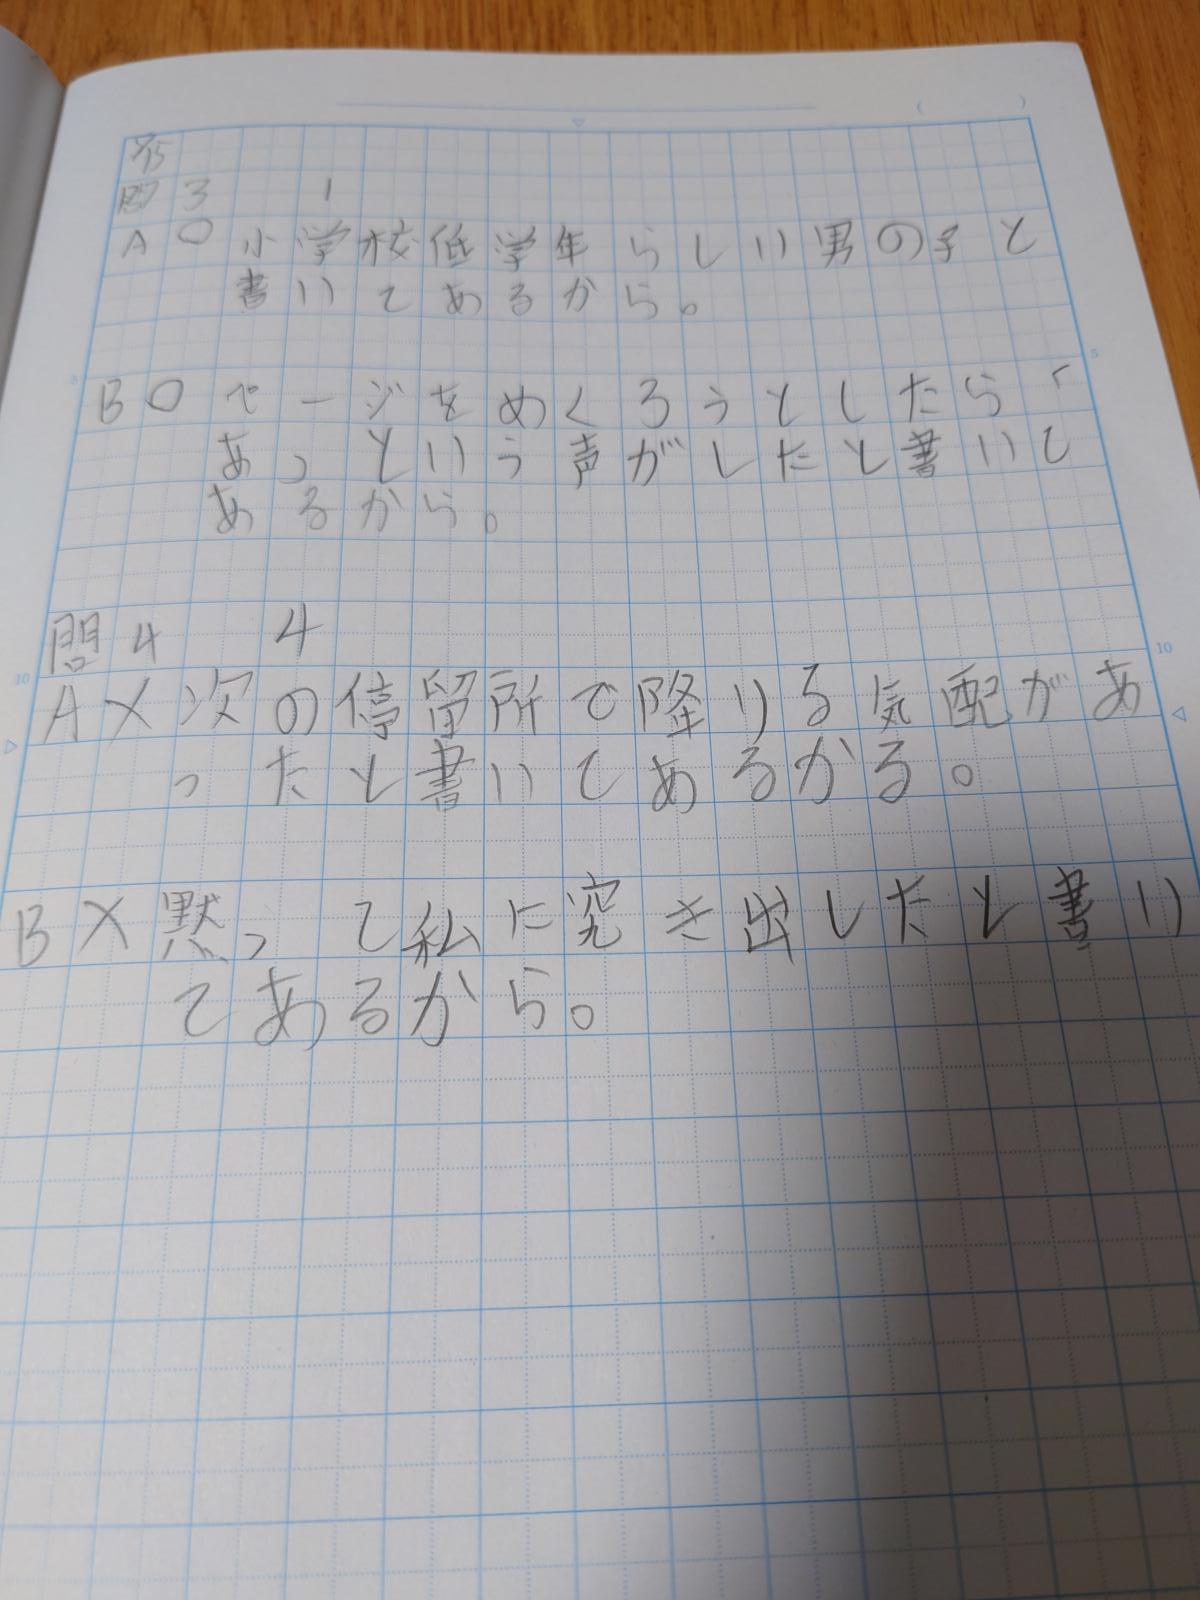 8/15
問3 1
A○小学校低学年らしい男の子と
書いてあるから。
B○ページをめくろうとしたら「
あっという声がしたと書いて
あるから。
問4 4
A×次の停留所で降りる気配があ
ったと書いてあるかる。
B×黙って私に究き出したと書い
てあるから。
5
5
10
10